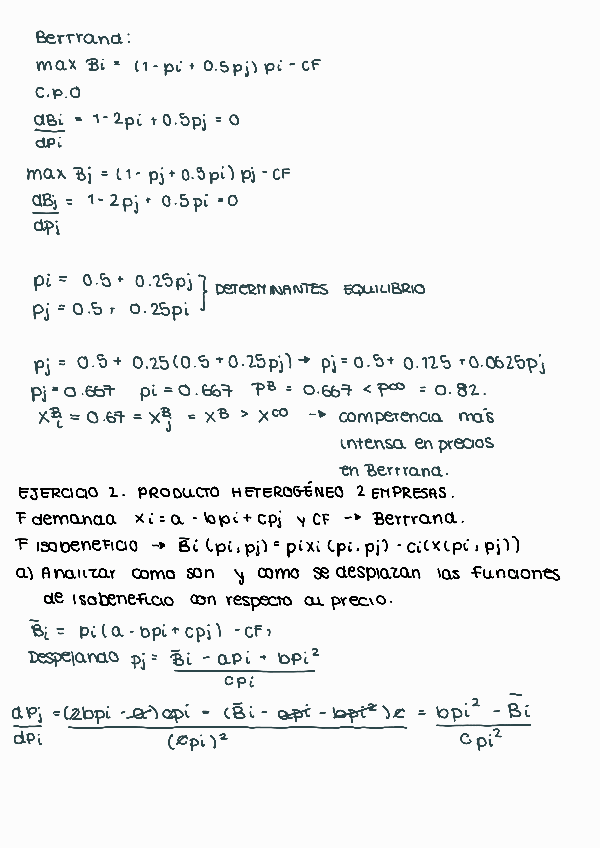 Berttrand:
max Bi = (1 - pi + 0.5pj) pi - CF
C.P.O
dBi = 1 - 2pi + 0.5pj = 0
dpi
max Bj = (1 - pj + 0.5pi) pj - CF
dBj = 1 - 2pj + 0.5pi = 0
dpj
pi = 0.5 + 0.25pj
pj = 0.5 + 0.25pi } DETERMINANTES EQUILIBRIO
pj = 0.5 + 0.25(0.5 + 0.25pj) → pj = 0.5 + 0.125 + 0.0625pj
pj = 0.667 pi = 0.667 PB = 0.667 < P∞ = 0.82.
XiB = 0.67 = XjB = XB > X∞ → competencia más
intensa en precios
en Bertrand.
EJERCICIO 2. PRODUCTO HETEROGÉNEO 2 EMPRESAS.
F demanda xi = a - bpi + cpj y CF → Bertrand.
F isobeneficio → B̄i (pi, pj) = pixi (pi, pj) - ci(x(pi, pj))
a) Analizar como son y como se desplazan las funciones
de isobeneficio con respecto al precio.
B̄i = pi(a - bpi + cpj) - CF,
Despejando pj = B̄i - api + bpi²
cpi
dPj = (2bpi - a)cpi - (B̄i - api - bpi²)c = bpi² - B̄i
dpi (cpi)² cpi²